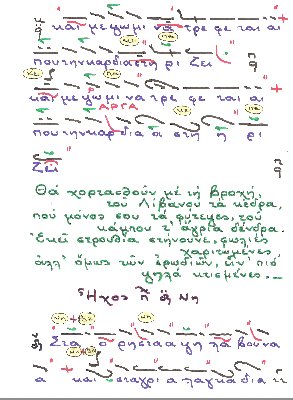 και με ψωμι να τρε φε ται αι
που την καρδια στη ρι
και με ψωμι να τρε φε ται αι
ΑΡΓΑ
που την καρδι α α στη η ρι
ζει
Θά χορτασθοῦν μέ τή βροχή,
τοῦ Λιβάνου τά κέδρα,
πού μόνος σου τά φύτεψες, τοῦ
κάμπου τ' ἄγρια δένδρα.
Ἐκεῖ στρουθιά στήνουνε, φωλιές
χαριτωμένες
ἀλλ' ὅμως τῶν ἐρωδιῶν, εἶν' πιό
ψηλά κτισμένες.
Ἦχος πλ δ Νη
Στα ο ρη στα α ψη λα βουνα
α και στ αγρι α λαγκαδια